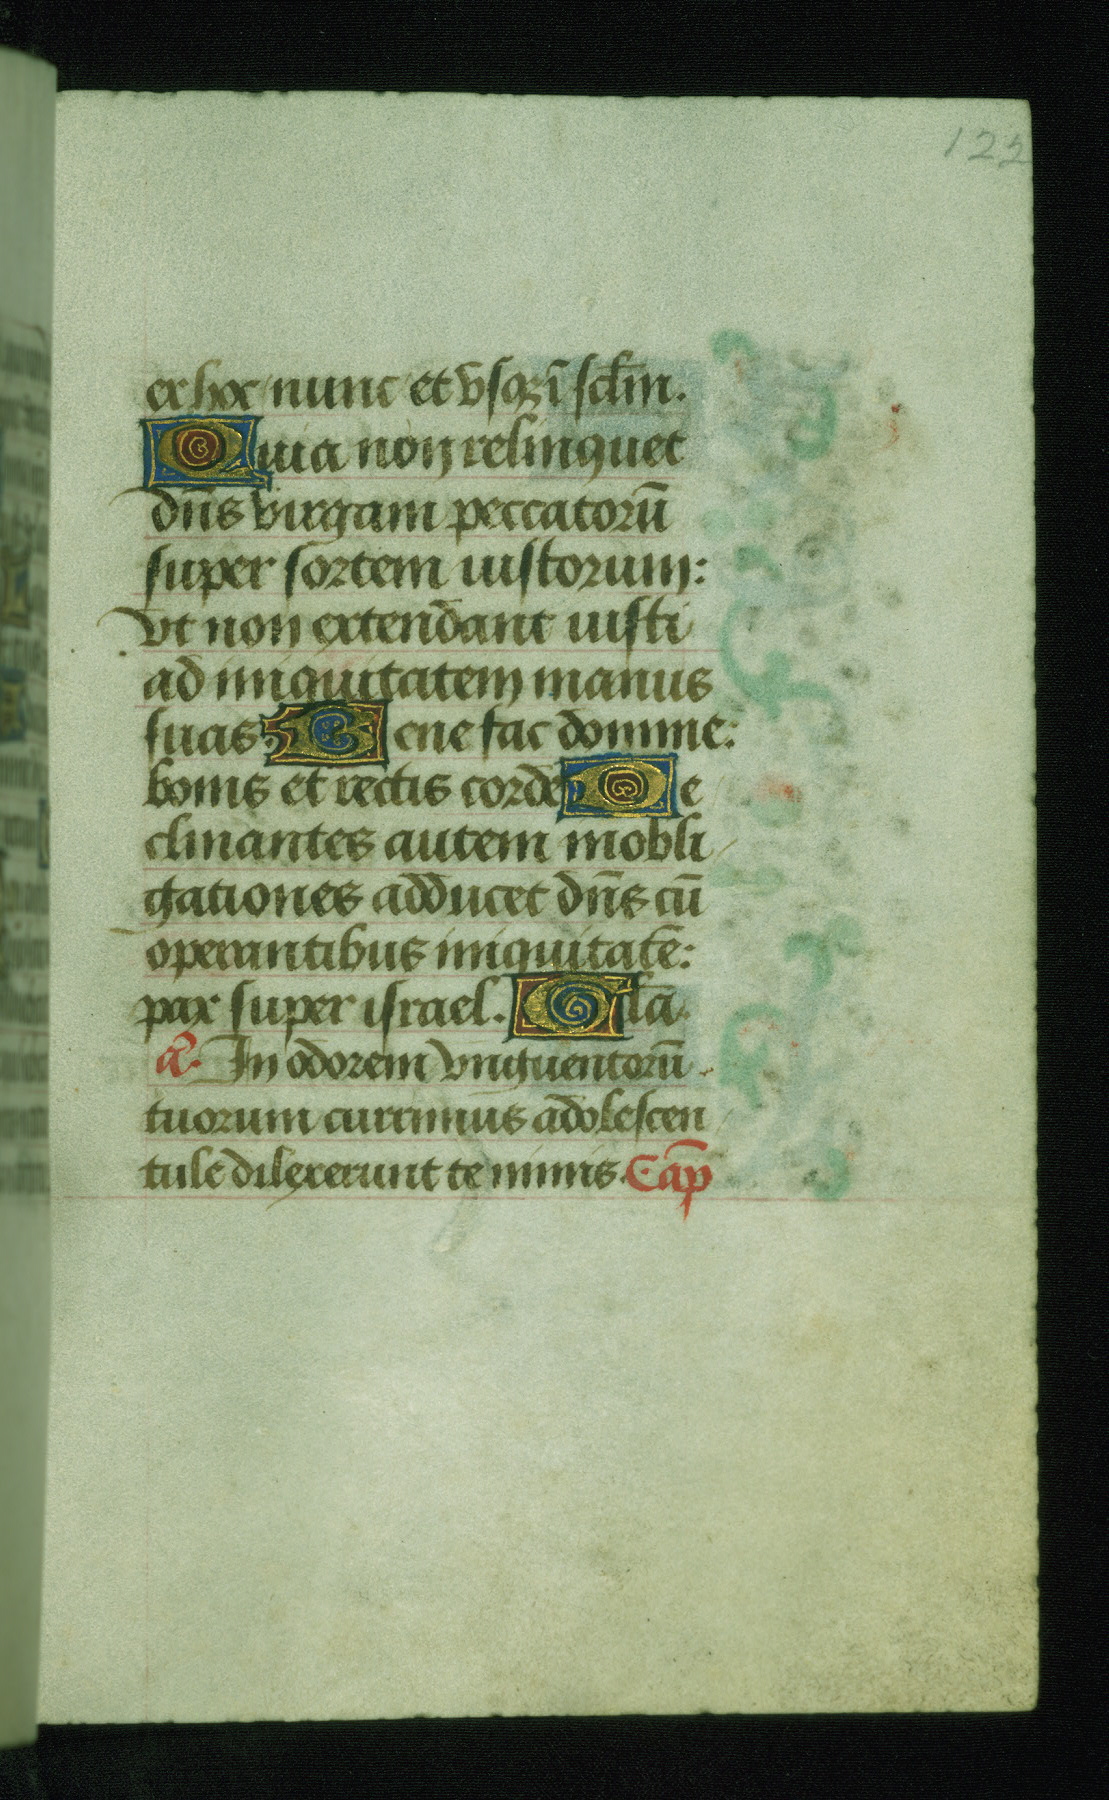 122
ex hoc nunc et vsqꝫ ī sclm̄.
Quia non relinquet
dn̄s virgam peccatorū
super sortem iustorum:
vt non extendant iusti
ad iniquitatem manus
suas. Bene fac domine:
bonis et rectis corde De
clinantes autem in obli
gationes adducet dn̄s cū
operantibus iniquitatē:
pax super israel. Glā.
añ. In odorem vnguentorū
tuorum currimus adolescen
tule dilexerunt te nimis. Cap̄